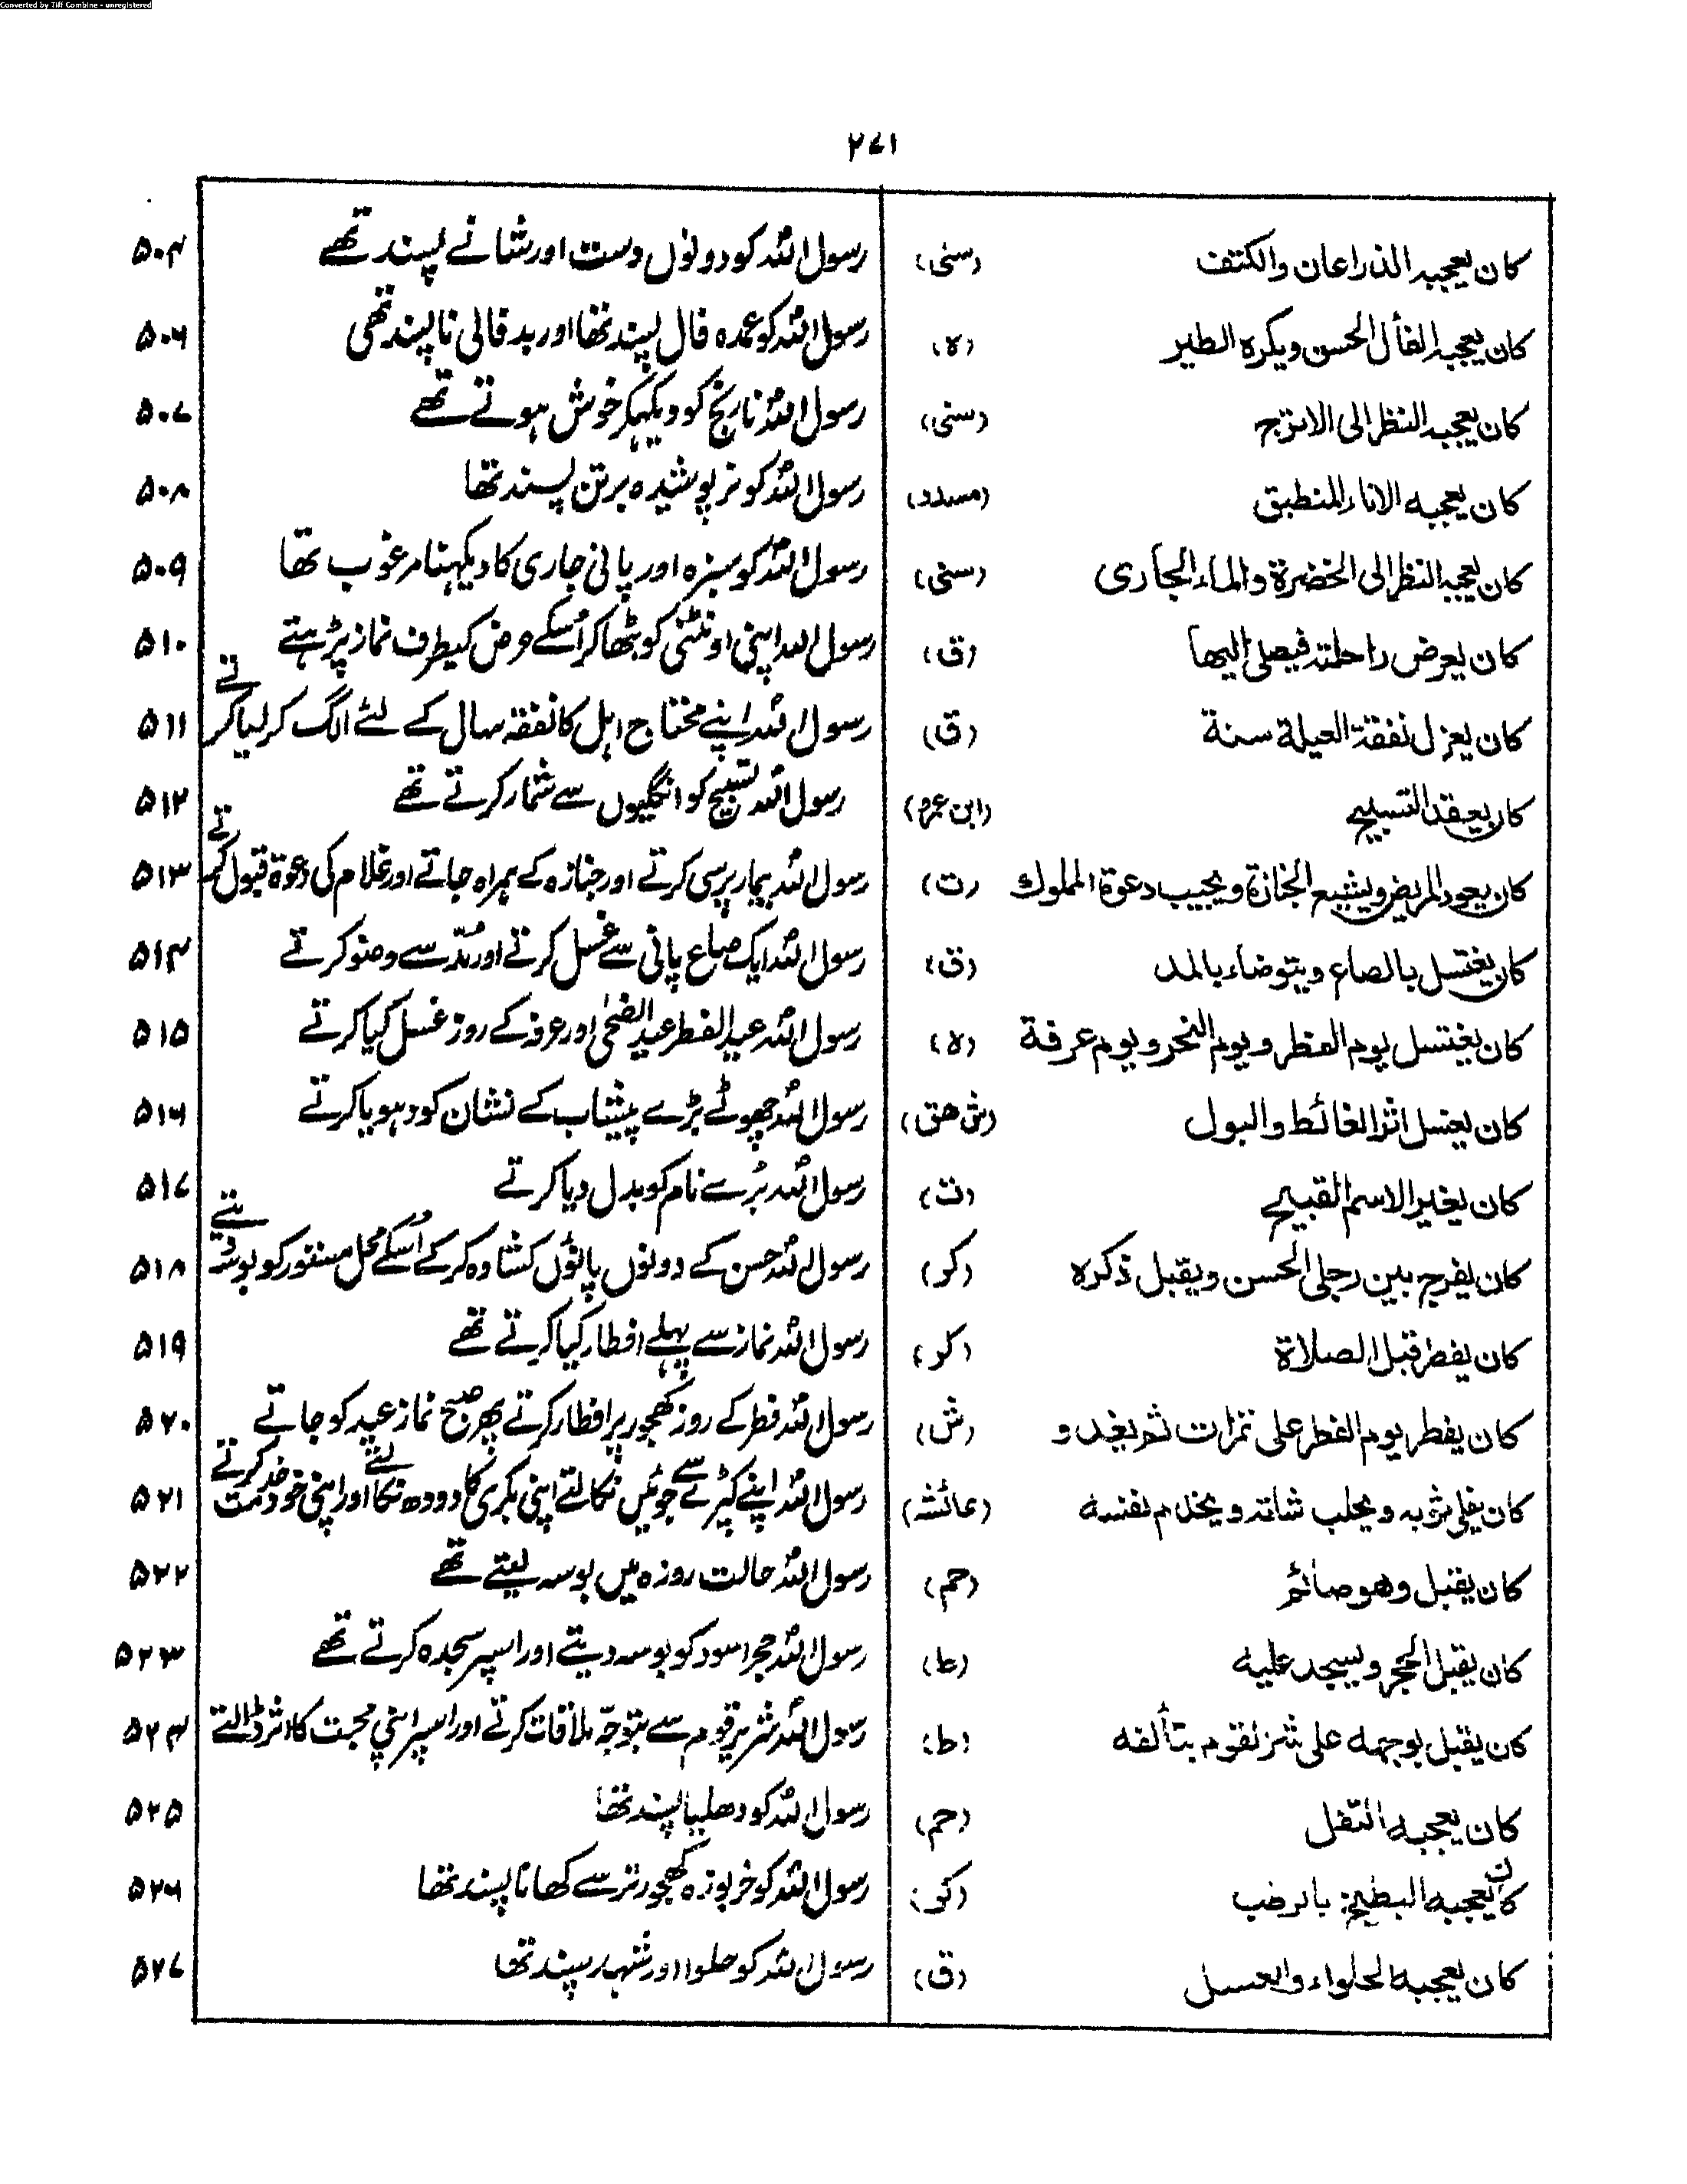 Converted by Tiff Combine - unregistered
۲۷۱
کان یعجبه الذراعان والکتف (سنی) رسول اللہ کو دونوں دست اور شانے پسند تھے ۵۰۴
کان یعجبه الفأل الحسن ویکره الطیر (ه) رسول اللہ کو عمدہ فال پسند تھا اور بد فالی ناپسند تھی ۵۰۶
کان یعجبه النظر الی الاترج (سنی) رسول اللہ نارنج کو دیکہکر خوش ہوتے تھے ۵۰۷
کان یعجبه الاناء المنطبق (مسدد) رسول اللہ کو سرپوشیدہ برتن پسند تھا ۵۰۸
کان یعجبه النظر الی الخضرة والماء الجاری (سنی) رسول اللہ کو سبزہ اور پانی جاری کا دیکہنا مرغوب تھا ۵۰۹
کان یعرض راحلته فیصلی الیها (ق) رسول اللہ اپنی اونٹنی کو بٹھا کر اُسکے عرض کیطرف نماز پڑہتے ۵۱۰
کان یعزل نفقة العیلة سنة (ق) رسول اللہ اپنے محتاج اہل کا نفقہ سال کے لئے الگ کر لیا کرتے ۵۱۱
کان یعقد التسبیح (ابن عمرو) رسول اللہ تسبیح کو انگلیوں سے شمار کرتے تھے ۵۱۲
کان یعود المریض ویشیع الجنازة ویجیب دعوة المملوك (ت) رسول اللہ بیمار پرسی کرتے اور جنازہ کے ہمراہ جاتے اور غلام کی دعوۃ قبول کرتے ۵۱۳
کان یغتسل بالصاع ویتوضاء بالمد (ق) رسول اللہ ایک صاع پانی سے غسل کرتے اور مُدّ سے وضو کرتے ۵۱۴
کان یغتسل یوم الفطر ویوم النحر ویوم عرفة (ه) رسول اللہ عید الفطر عید الضحٰی اور عرفہ کے روز غسل کیا کرتے ۵۱۵
کان یغسل اثر الغائط والبول (ش حق) رسول اللہ چھوٹے بڑے پیشاب کے نشان کو دہویا کرتے ۵۱۶
کان یغیر الاسم القبیح (ت) رسول اللہ بُرے نام کو بدل دیا کرتے ۵۱۷
کان یفرج بین رجلی الحسن ویقبل ذکره (کر) رسول اللہ حسن کے دونوں پانؤں کشادہ کر کے اُسکے محل مستور کو بوسہ دیتے ۵۱۸
کان یفطر قبل الصلاة (کر) رسول اللہ نماز سے پہلے افطار کیا کرتے تھے ۵۱۹
کان یفطر یوم الفطر علی تمرات ثم یغدو (ش) رسول اللہ فطر کے روز کھجور پر افطار کرتے پھر صبح نماز عید کو جاتے ۵۲۰
کان یفلی ثوبه ویحلب شاته ویخدم نفسه (عائشہ) رسول اللہ اپنے کپڑے سے جوئیں نکالتے اپنی بکری کا دودھ نکالتے اور اپنی خود خدمت کرتے ۵۲۱
کان یقبل وهو صائم (حم) رسول اللہ حالت روزہ میں بوسہ لیتے تھے ۵۲۲
کان یقبل الحجر ویسجد علیه (ط) رسول اللہ حجر اسود کو بوسہ دیتے اور اسپر سجدہ کرتے تھے ۵۲۳
کان یقبل بوجهه علی شر القوم یتألفه (ط) رسول اللہ شریر قوم سے بتوجّہ ملاقات کرتے اور اسپر اپنی محبت کا اثر ڈالتے ۵۲۴
کان یعجبه الثفل (حم) رسول اللہ کو دھلیا پسند تھا ۵۲۵
کان یعجبه البطیخ بالرطب (کر) رسول اللہ کو خربوزہ کھجور تر سے کھانا پسند تھا ۵۲۶
کان یعجبه الحلواء والعسل (ق) رسول اللہ کو حلوا اور شہد پسند تھا ۵۲۷